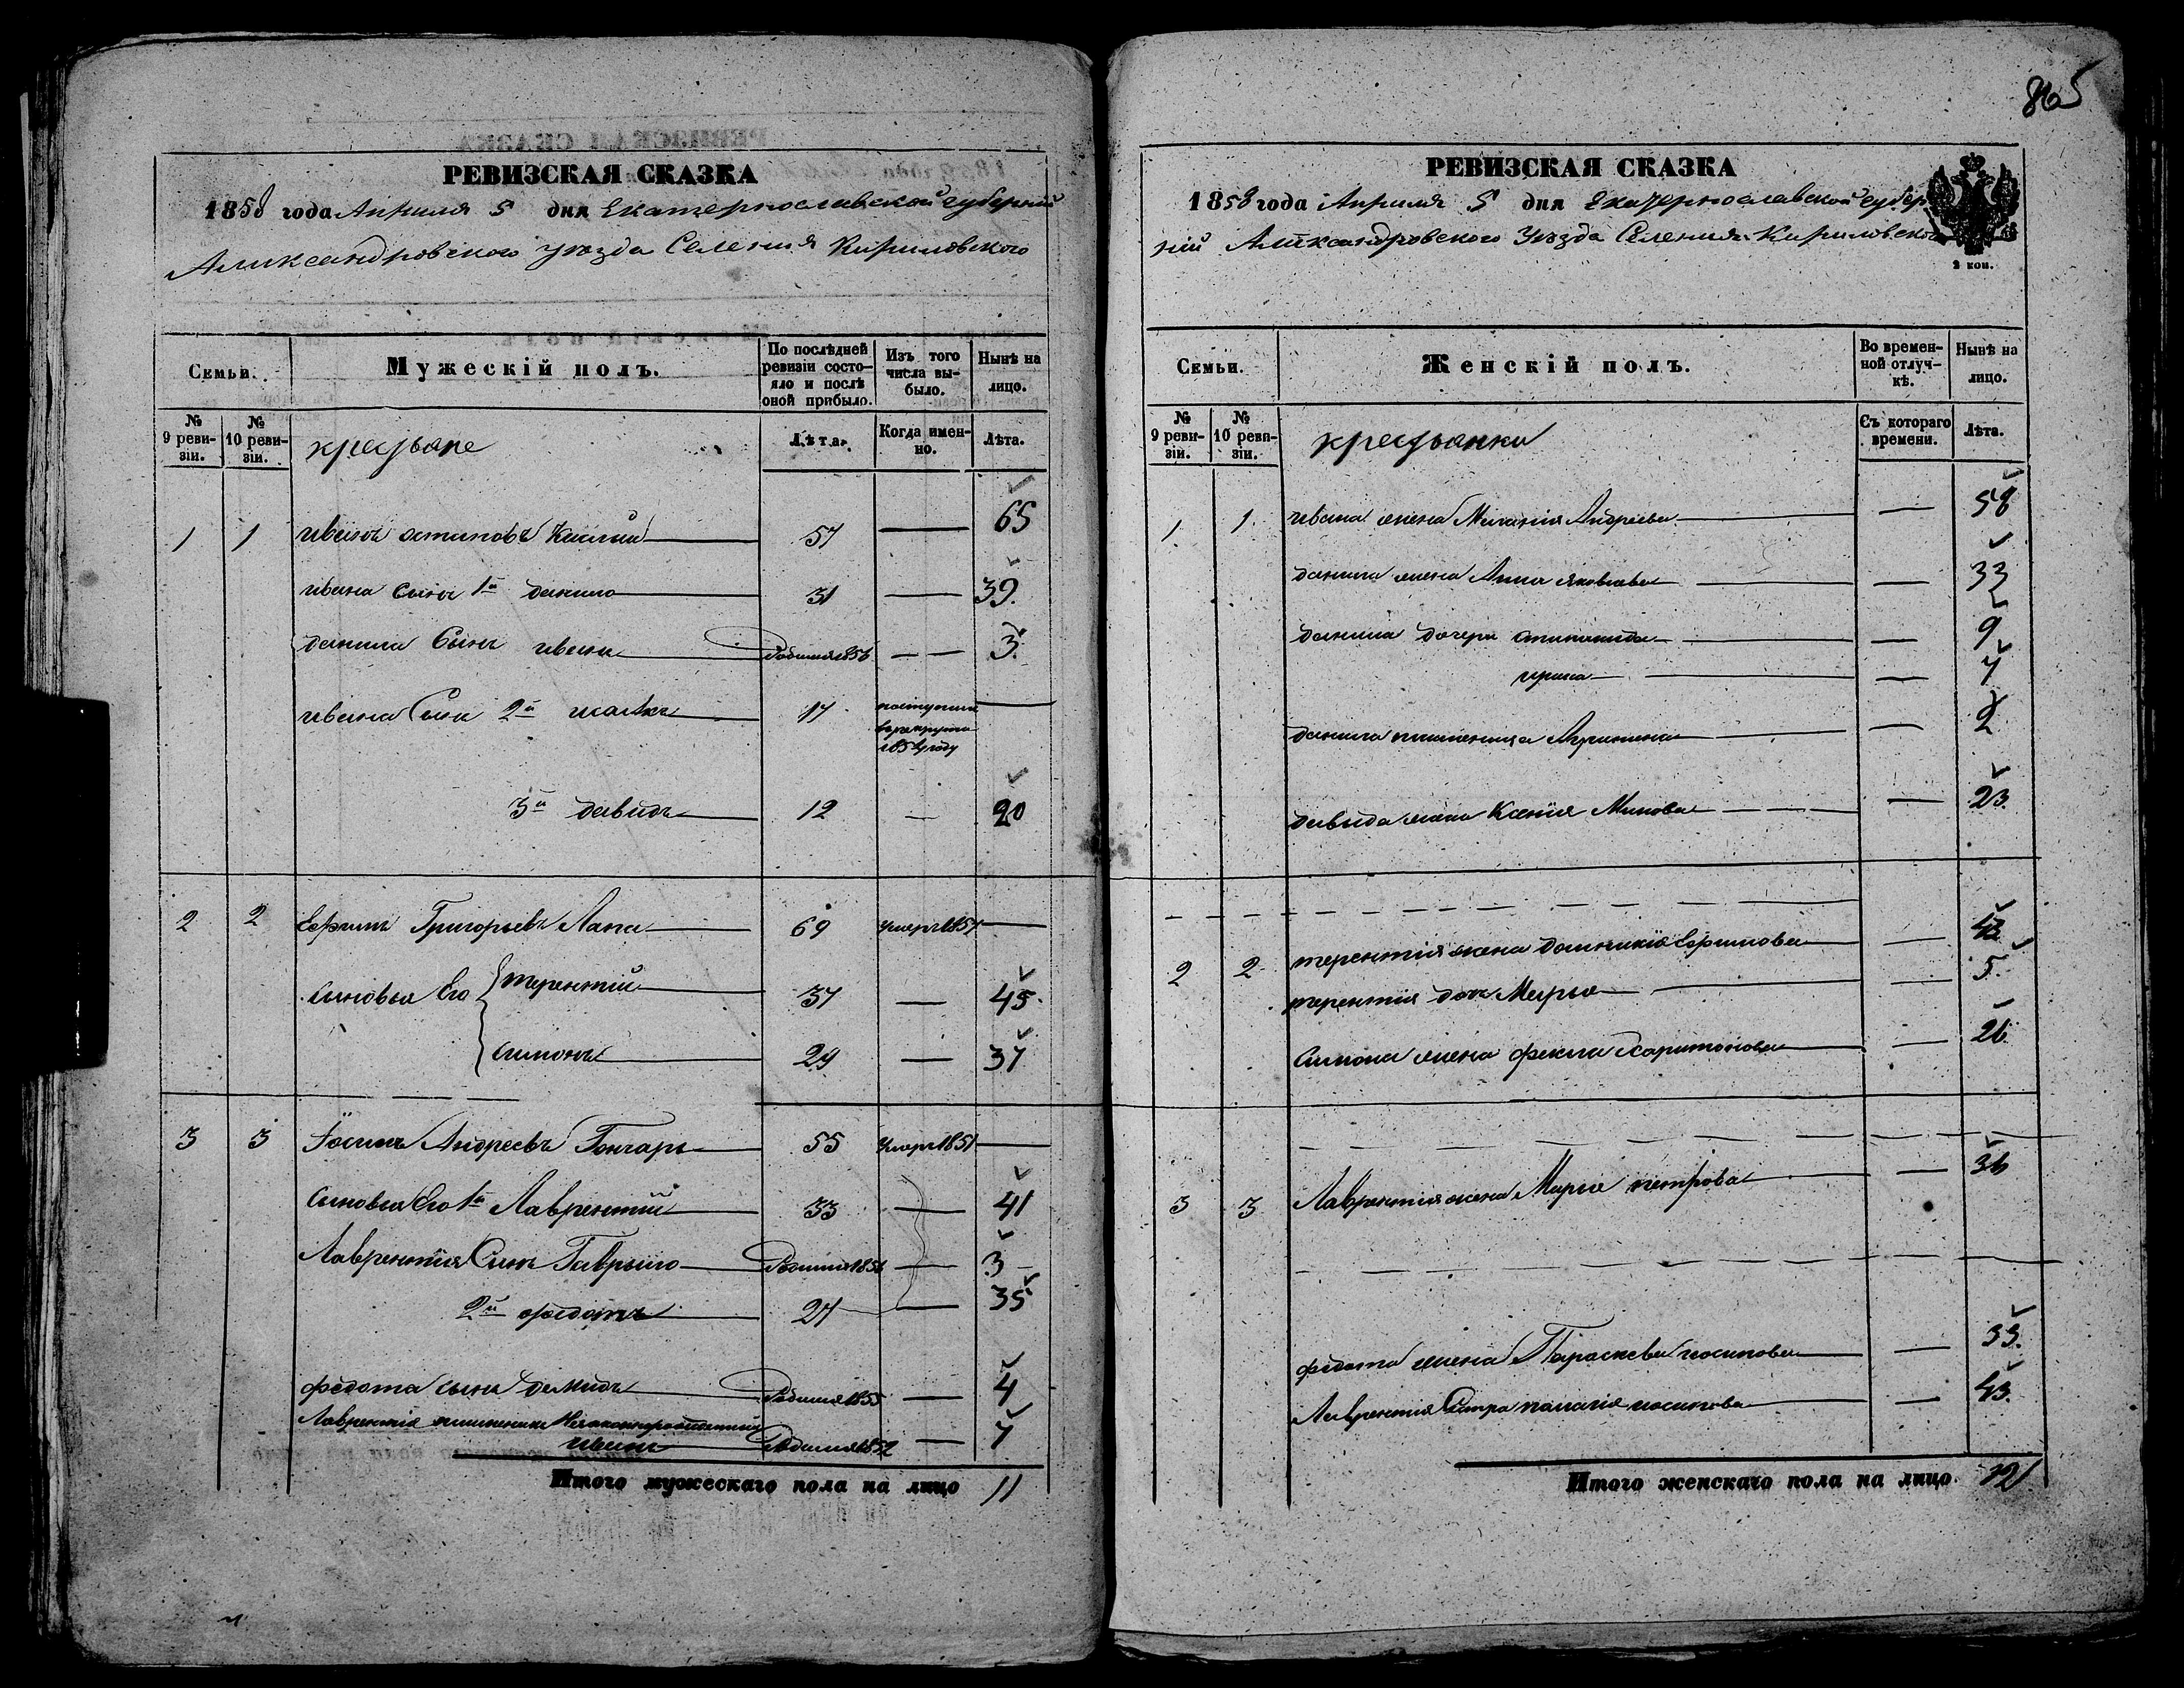 865
РЕВИЗСКАЯ СКАЗКА
1858 года Апреля 5 дня Екатеринославской губерніи
Александровского уезда Селения Кириловского
Семьи.
Мужескій полъ.
По послѣдней ревизіи состояло и послѣ оной прибыло.
Изъ того числа выбыло.
Нынѣ на лицо.
№ 9 ревизіи.
№ 10 ревизіи.
крестьяне
Лѣта.
Когда именно.
Лѣта.
1 1 иванъ остиповъ 57 — 65
ивана сынъ 1й данило 31 — 39.
данила Сынъ иванъ Родился 1856 — — 3.
ивана Сынъ 2й 17 поступилъ —
в рекруты
1854 году
3й давидъ 12 — 20
2 2 Ефимъ Григорьевъ Лапа 69 Умеръ 1857 —
сыновья Его терентій 37 — 45.
симонъ 29 — 37
3 3 Іосипъ Андреевъ Гончаръ 55 Умеръ 1851 —
сыновья Его 1й Лаврентій 33 — 41
Лаврентія Сынъ Гаврыло Родился 1856 — 3
2й федотъ 27 — 35
федота сынъ демидъ Родился 1855 — 4
Лаврентія племенникъ Незаконнорожденный
иванъ Родился 1852 — 7
Итого мужескаго пола на лицо 11
РЕВИЗСКАЯ СКАЗКА
1858 года Апреля 5 дня Екатеринославской губер
ніи Александровского Уезда Селения Кириловского
2 коп.
Семьи.
Женскій полъ.
Во временной отлучкѣ.
Нынѣ на лицо.
№ 9 ревизіи.
№ 10 ревизіи.
крестьянки
Съ котораго времени.
Лѣта.
1 1. ивана жена Миланія Андреева — 58
данила жена Анна яковлева — 33
данила дочери — 9
ирина — 7
данила племеница — 2
давыда жена Ксенія Минова — 23.
2 2 терентія жена домникія Ефимова — 43
терентія дочь Марья — 5.
Симона жена фекла Харитонова — 26
3 3 Лаврентія жена Марья петрова — 36
федота жена Параскева иосипова — 33.
Лаврентія Сестра палагія иосипова — 43.
Итого женскаго пола на лицо 12